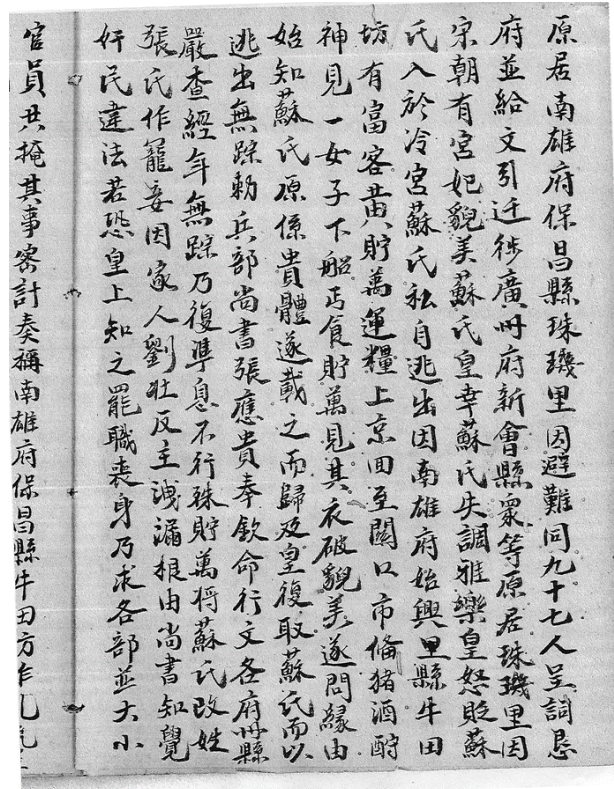 原居南雄府保昌縣珠璣里因避難同九十七人呈詞懇
府並給文引迁徙廣州府新會縣衆等原居珠璣里因
宋朝有宮妃貌美蘇氏皇幸蘇氏失調雅樂皇怒貶蘇
氏入於冷宮蘇氏私自逃出因南雄府始興里縣牛田
坊有富客黃貯萬運糧上京回至關口市倫猪酒酧
神見一女子下船丐食貯萬見其衣破貌美遂問緣由
始知蘇氏原係貴體遂載之而歸及皇復取蘇氏而以
逃出無踪勅兵部尚書張應貴奉欽命行文各府州縣
嚴查經年無踪乃復準息不行殊貯萬将蘇氏改姓
張氏作寵妾因家人劉壯反主洩漏根由尚書知覺
奸民違法若恐皇上知之罷職喪身乃求各部並大小
官員共掩其事密計奏稱南雄府保昌縣牛田方作